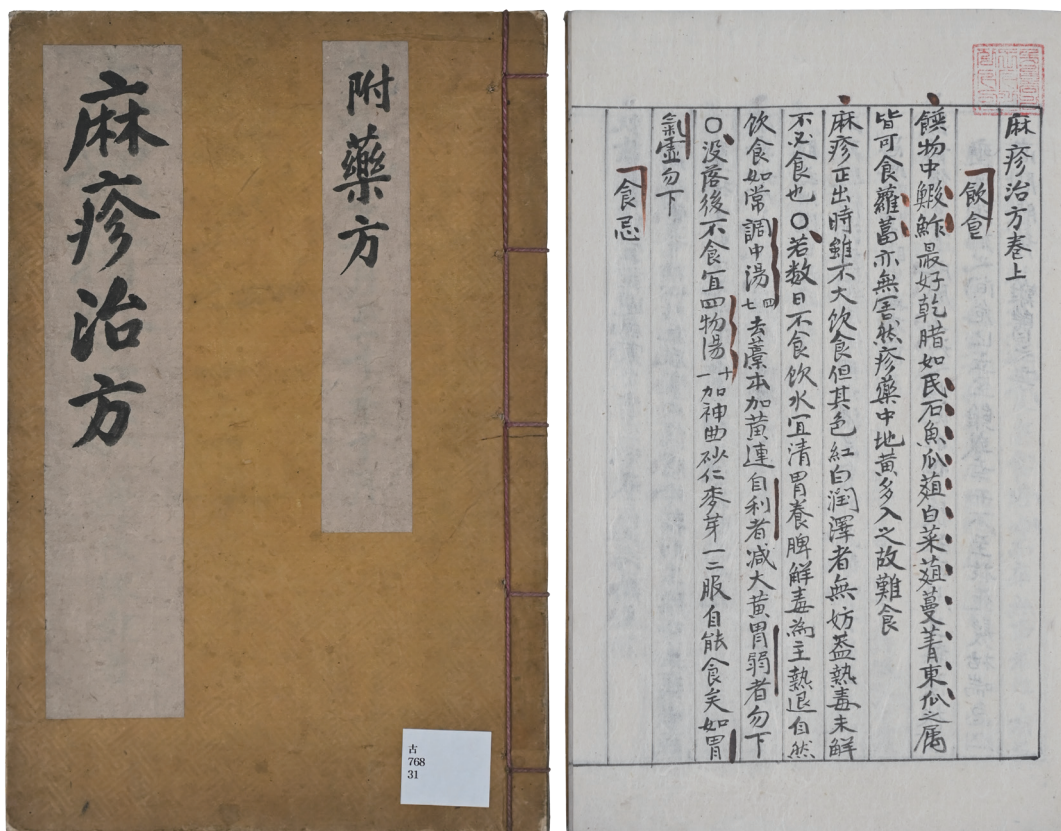 麻疹治方
附藥方
古
768
31
麻疹治方卷上
飮食
饌物中鰕鮓最好乾腊如民石魚瓜菹白菜菹蔓菁東瓜之属
皆可食蘿葍亦無害然疹藥中地黃多入之故難食
麻疹正出時雖不大飮食但其色紅白潤澤者無妨盖熱毒未解
不必食也〇若数日不食飮水宜清胃養脾解毒為主熱退自然
飮食如常調中湯四七去藁本加黃連自利者减大黃胃弱者勿下
〇没落後不食宜四物湯十一加神曲砂仁麥芽一二服自能食矣如胃
氣虛勿下
食忌